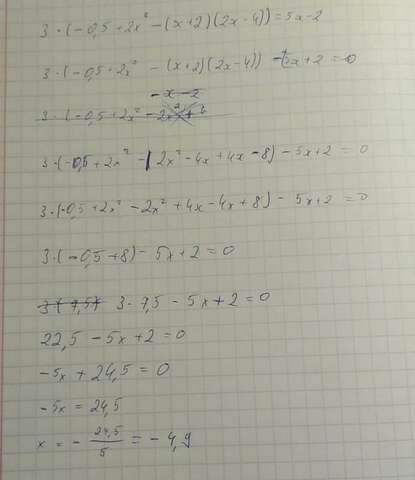 3·(-0,5+2x²-(x+2)(2x-4))=5x-2
3·(-0,5+2x²-(x+2)(2x-4))-5x+2=0
-x-2
3·(-0,5+2x²-2x²+
3·(-0,5+2x²-(2x²-4x+4x-8)-5x+2=0
3·(-0,5+2x²-2x²+4x-4x+8)-5x+2=0
3·(-0,5+8)-5x+2=0
3(7,5) 3·7,5-5x+2=0
22,5-5x+2=0
-5x+24,5=0
-5x=24,5
x=-24,5/5=-4,9